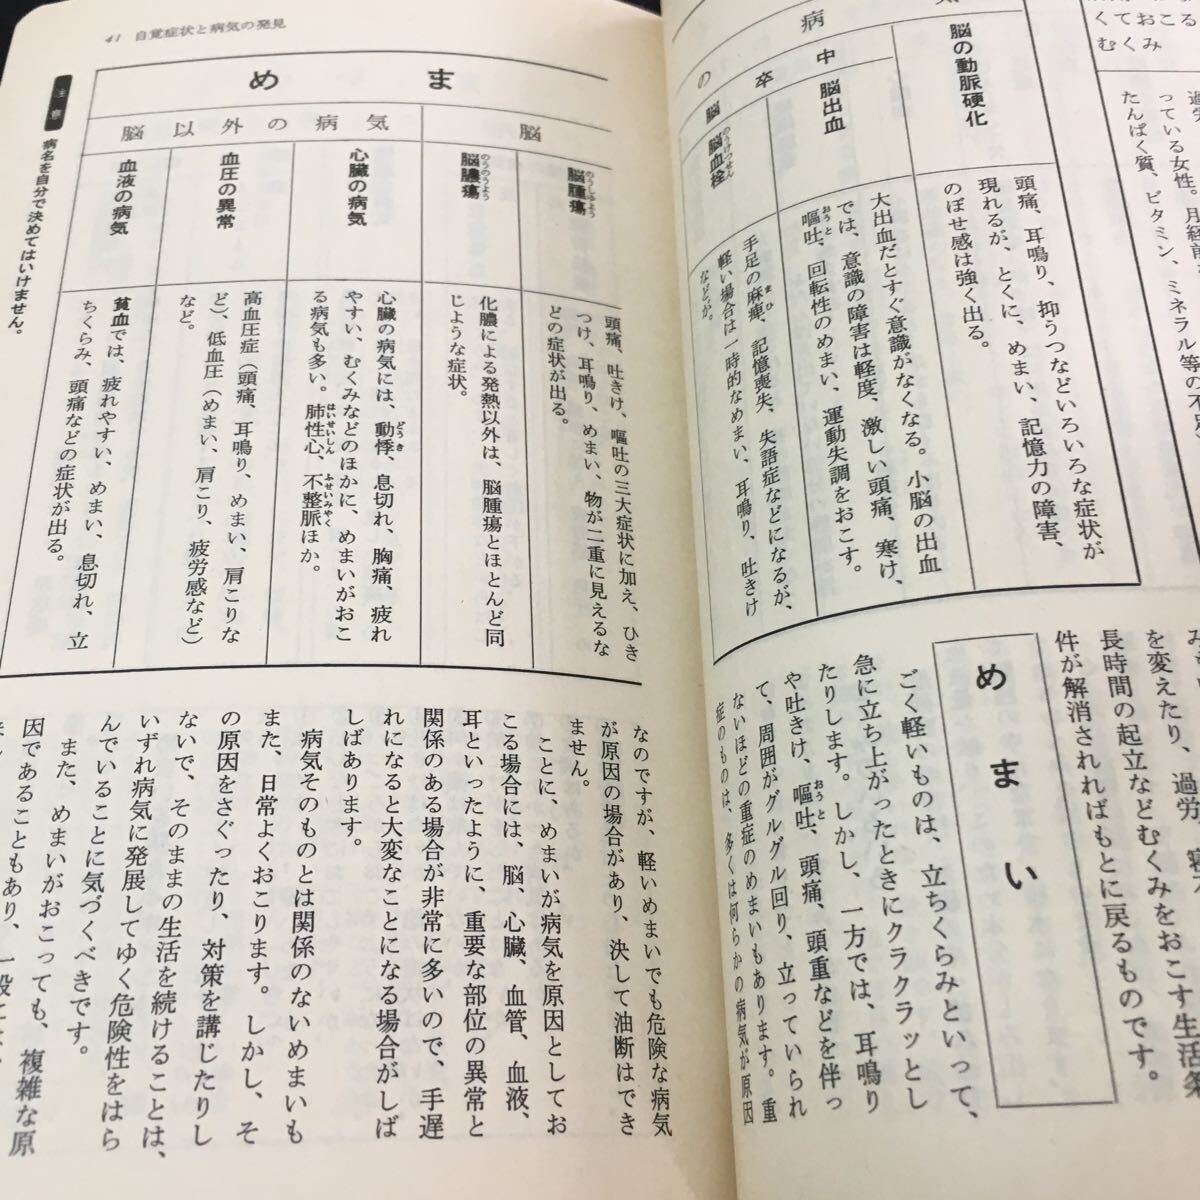 くておこる
むくみ
過労
っている女性。月経前
たんぱく質、ビタミン、ミネラル等の不
病
の
脳の動脈硬化
頭痛、耳鳴り、抑うつなどいろいろな症状が
現れるが、とくに、めまい、記憶力の障害、
のぼせ感は強く出る。
脳卒中
脳出血
大出血だとすぐ意識がなくなる。小脳の出血
では、意識の障害は軽度、激しい頭痛、寒け、
嘔吐、回転性のめまい、運動失調をおこす。
おうと
脳血栓
のうけつせん
手足の麻痺、記憶喪失、失語症などになるが、
まひ
軽い場合は一時的なめまい、耳鳴り、吐きけ
などが。
を変えたり、過労
みも
長時間の起立などむくみをおこす生活条
件が解消されればもとに戻るものです。
めまい
ごく軽いものは、立ちくらみといって、
急に立ち上がったときにクラクラッとし
たりします。しかし、一方では、耳鳴り
や吐きけ、嘔吐、頭痛、頭重などを伴っ
おうと
て、周囲がグルグル回り、立っていられ
ないほどの重症のめまいもあります。重
症のものは、多くは何らかの病気が原因
41 自覚症状と病気の発見
めま
脳
脳以外の病気
脳腫瘍
のうしゅよう
頭痛、吐きけ、嘔吐の三大症状に加え、ひき
つけ、耳鳴り、めまい、物が二重に見えるな
どの症状が出る。
脳膿瘍
のうのうよう
化膿による発熱以外は、脳腫瘍とほとんど同
じような症状。
心臓の病気
心臓の病気には、動悸、息切れ、胸痛、疲れ
どうき
やすい、むくみなどのほかに、めまいがおこ
る病気も多い。肺性心、不整脈ほか。
はいせいしん
ふせいみゃく
血圧の異常
高血圧症(頭痛、耳鳴り、めまい、肩こりな
ど)、低血圧(めまい、肩こり、疲労感など)
など。
血液の病気
貧血では、疲れやすい、めまい、息切れ、立
ちくらみ、頭痛などの症状が出る。
注意
病名を自分で決めてはいけません。
なのですが、軽いめまいでも危険な病気
が原因の場合があり、決して油断はでき
ません。
ことに、めまいが病気を原因としてお
こる場合には、脳、心臓、血管、血液、
耳といったように、重要な部位の異常と
関係のある場合が非常に多いので、手遅
れになると大変なことになる場合がしば
しばあります。
病気そのものとは関係のないめまいも
また、日常よくおこります。しかし、そ
の原因をさぐったり、対策を講じたりし
ないで、そのままの生活を続けることは、
いずれ病気に発展してゆく危険性をはら
んでいることに気づくべきです。
また、めまいがおこっても、複雑な原
因であることもあり、一般に